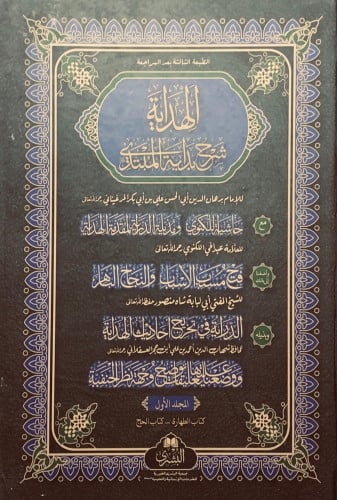 الطبعة الثالثة بعد المراجعة
الهداية
شرح بداية المبتدي
للإمام برهان الدين أبي الحسن علي بن أبي بكر المرغيناني رحمه الله تعالى
مع
حاشية اللكنوي ومذيلة الدراية لمقدمة الهداية
للعلامة عبد الحي اللكنوي رحمه الله تعالى
فتح مسبب الأسباب
للشيخ المفتي أبي لبابة شاه منصور حفظه الله تعالى
وبذيله
الدراية في تخريج أحاديث الهداية
للحافظ شهاب الدين أحمد بن علي ابن حجر العسقلاني رحمه الله تعالى
المجلد الأول
كتاب الطهارة - كتاب الحج
البشرى